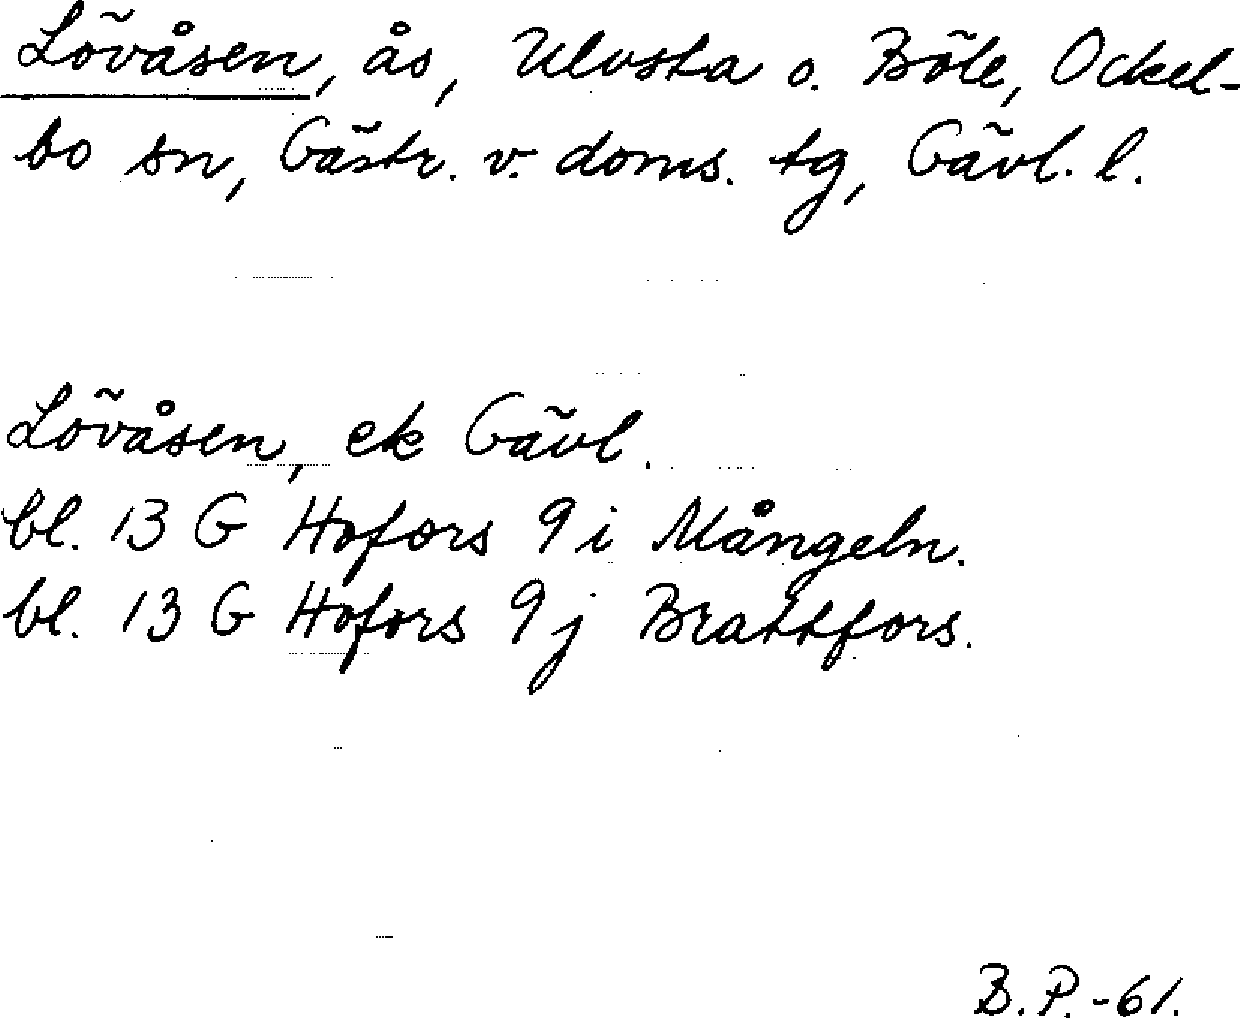 Lövåsen, ås, Ulvsta o. Böle, Ockel-
bo sn, Gästr. v. doms. tg, Gävl. l.
Lövåsen, ek Gävl.
bl. 13 G Hofors 9 i Mångeln.
bl. 13 G Hofors 9 j Brattfors.
B.P.-61.